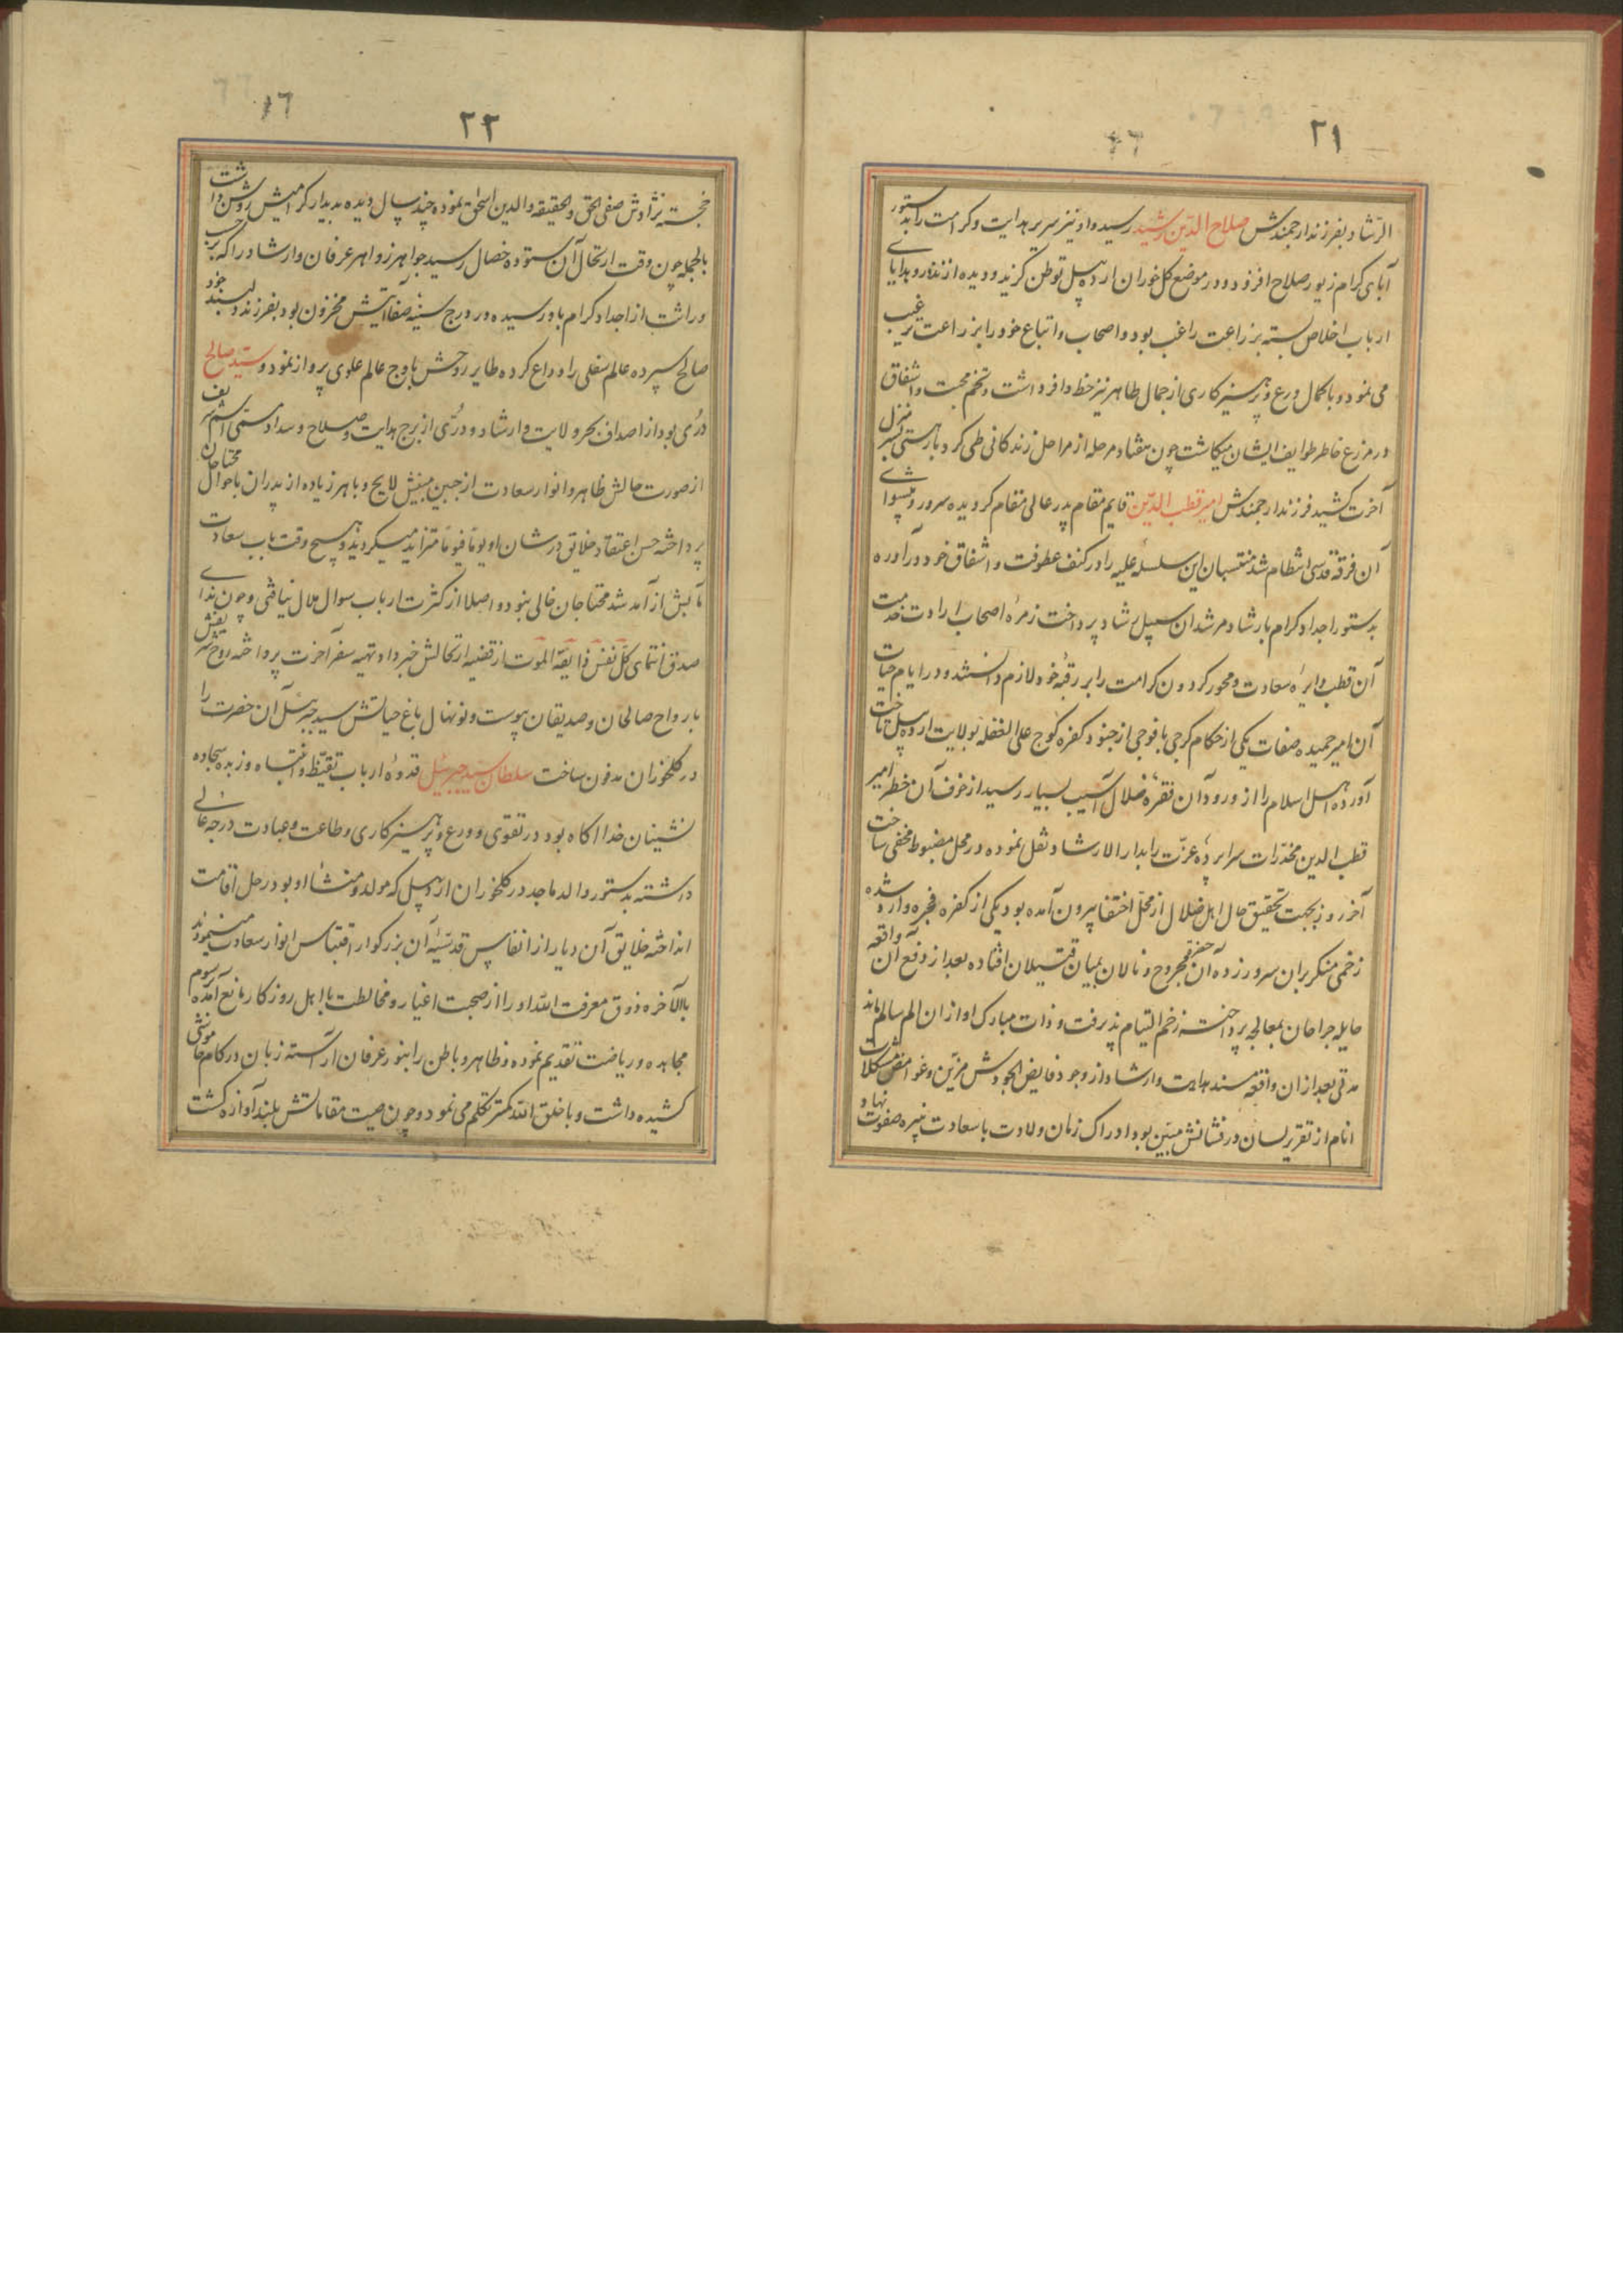 ۲۱
الرشاد بفرزند ارجمندش صلاح الدین رشید رسید و او نیز سریر هدایت و کرامت را بدستور
آبای کرام زیور صلاح افزود و در موضع کلخوران اردبیل توطن گزید و دیده از نذار و هدایای
ارباب اخلاص بسته بزراعت راغب بود و اصحاب و اتباع خود را بزراعت ترغیب
می نمود و با کمال ورع و پرهیزکاری از جمال ظاهر نیز حظ وافر داشت و تخم محبت و اشفاق
در مزرع خاطر طوایف ایشان میکاشت چون هفتاد مرحله از مراحل زندگانی طی کرد بار هستی بسر منزل
آخرت کشید فرزند ارجمندش امیر قطب الدین قایم مقام پدر عالی مقام گردیده سرور و پیشوای
آن فرقه قدسی انتظام شد منتسبان این سلسله علیه را در کنف عطوفت و اشفاق خود درآورده
بدستور اجداد کرام بارشاد مرشدان سبیل رشاد پرداخت زمره اصحاب ارادت خدمت
آن قطب دایره سعادت و محور گردون کرامت را بر رقبه خود لازم دانستند و در ایام حیات
آن امیر حمیده صفات یکی از حکام گرجی با فوجی از جنود کفره کوج علی الغفله بولایت اردبیل تاخت
آورده اهل اسلام را از ورود آن فقره ضلال آسیب بسیار رسید از خوف آن خطر امیر
قطب الدین مخدرات سراپرده عزت را بدار الارشاد نقل نموده در محل مضبوط مخفی ساخت
آخر روز بجهت تحقیق حال اهل ضلال از محل اختفا بیرون آمده بود یکی از کفره فجره وارد شده
زخمی منکر بران سرور زده آن حضرت مجروح و نالان بمیان قتیلان افتاده بعد از دفع آن واقعه
هایله جراحان بمعالجه پرداخته زخم التیام پذیرفت و ذات مبارک او از ان الم سالم ماند
مدتی بعد از ان واقعه مسند هدایت و ارشاد از وجود فایض الجودش مزین و غوامض مشکلات
انام از تقریر لسان درفشانش مبین بود ادراک زمان ولادت با سعادت نبیره صفوت نهاد و
۲۲
خجسته نژادش صفی الحق والحقیقه والدین اسحاق نموده چند سال دیده بدیدار گرامیش روشن داشت
بالجمله چون وقت ارتحال آن ستوده خصال رسید جواهر زواهر عرفان و ارشاد را که برحسب
وراثت از اجداد کرام باو رسیده و در درج سینه صفا آتیش مخزون بود بفرزند دلبند خود
صالح سپرده عالم سفلی را وداع کرده طایر روحش باوج عالم علوی پرواز نمود و سید صالح
دری بود از اصداف بحر ولایت و ارشاد و دری از برج هدایت و صلاح و سداد مسمی اسم شریف
از صورت حالش ظاهر و انوار سعادت از جبین مبینش لایح و باهر زیاده از پدران باحوال محتاجان
پرداخته حسن اعتقاد خلایق در شان او یوما فیوما متزاید میگردید و هیچ وقت باب سعادت
مآبش از آمد شد محتاجان خالی نبود و اصلا از کثرت ارباب سوال ملال نیافتی و چون ندای
صدق انتمای کل نفس ذایقة الموت از قضیه ارتحالش خبر داد تهیه سفر آخرت پرداخته روح شریفش
بارواح صالحان و صدیقان پیوست و نونهال باغ حیاتش سید جبرئیل آن حضرت را
در کلخوران مدفون ساخت سلطان سید جبرئیل قدوه ارباب تیقظ و انتباه و زبده سجاده
نشینان خدا آگاه بود در تقوی و ورع و پرهیزکاری و طاعت و عبادت درجه عالی
داشته بدستور والد ماجد در کلخوران اردبیل که مولد و منشا او بود رحل اقامت
انداخته خلایق آن دیار از انفاس قدسیه آن بزرگوار اقتباس انوار سعادت مینمودند
بالاخره ذوق معرفت الله او را از صحبت اغیار و مخالطت با اهل روزگار مانع آمده رسوم
مجاهده و ریاضت تقدیم نموده ظاهر و باطن را بنور عرفان آراسته زبان در کام خاموشی
کشیده داشت و با خلق الله کمتر تکلم می نمود و چون صیت مقاماتش بلند آوازه گشت